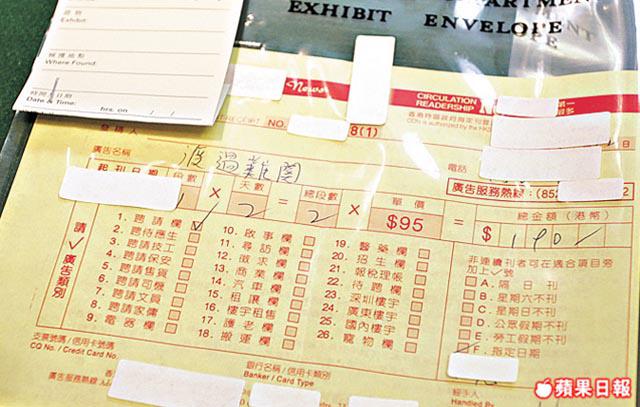 EXHIBIT ENVELOPE
Exhibit
Where Found
時間及日期
Date & Time: hrs. on / /
News
CIRCULATION
READERSHIP NO.
NO. 8(1)
廣告名稱 渡過難關
電話
廣告服務熱線:(852 2
起刊日期 段數 天數 總段數 單價 總金額(港幣)
1 × 2 = 2 × $95 = $ 190
請✓廣告類別
1. 聘請欄 ✓
2. 聘待應生
3. 聘請技工
4. 聘請保安
5. 聘請售貨
6. 聘請司機
7. 聘請文員
8. 聘請家傭
9. 電器欄
10. 啟事欄
11. 尋訪欄
12. 徵求欄
13. 商業欄
14. 汽車欄
15. 租讓欄
16. 樓宇租售
17. 護老欄
18. 搬運欄
19. 醫藥欄
20. 招生欄
21. 報稅理帳
22. 待聘欄
23. 深圳樓宇
24. 廣東樓宇
25. 國內樓宇
26. 寵物欄
非連續刊者可在適合項目旁
加上✓號
A. 隔日刊
B. 星期六不刊
C. 星期日不刊
D. 公眾假期不刊
E. 勞工假期不刊
F. 指定日期
支票號碼/信用卡號碼
CQ No. / Credit Card No.
銀行名稱/信用卡類別
Banker / Card Type
廣告服務熱線
經手人
Handled By
蘋果日報